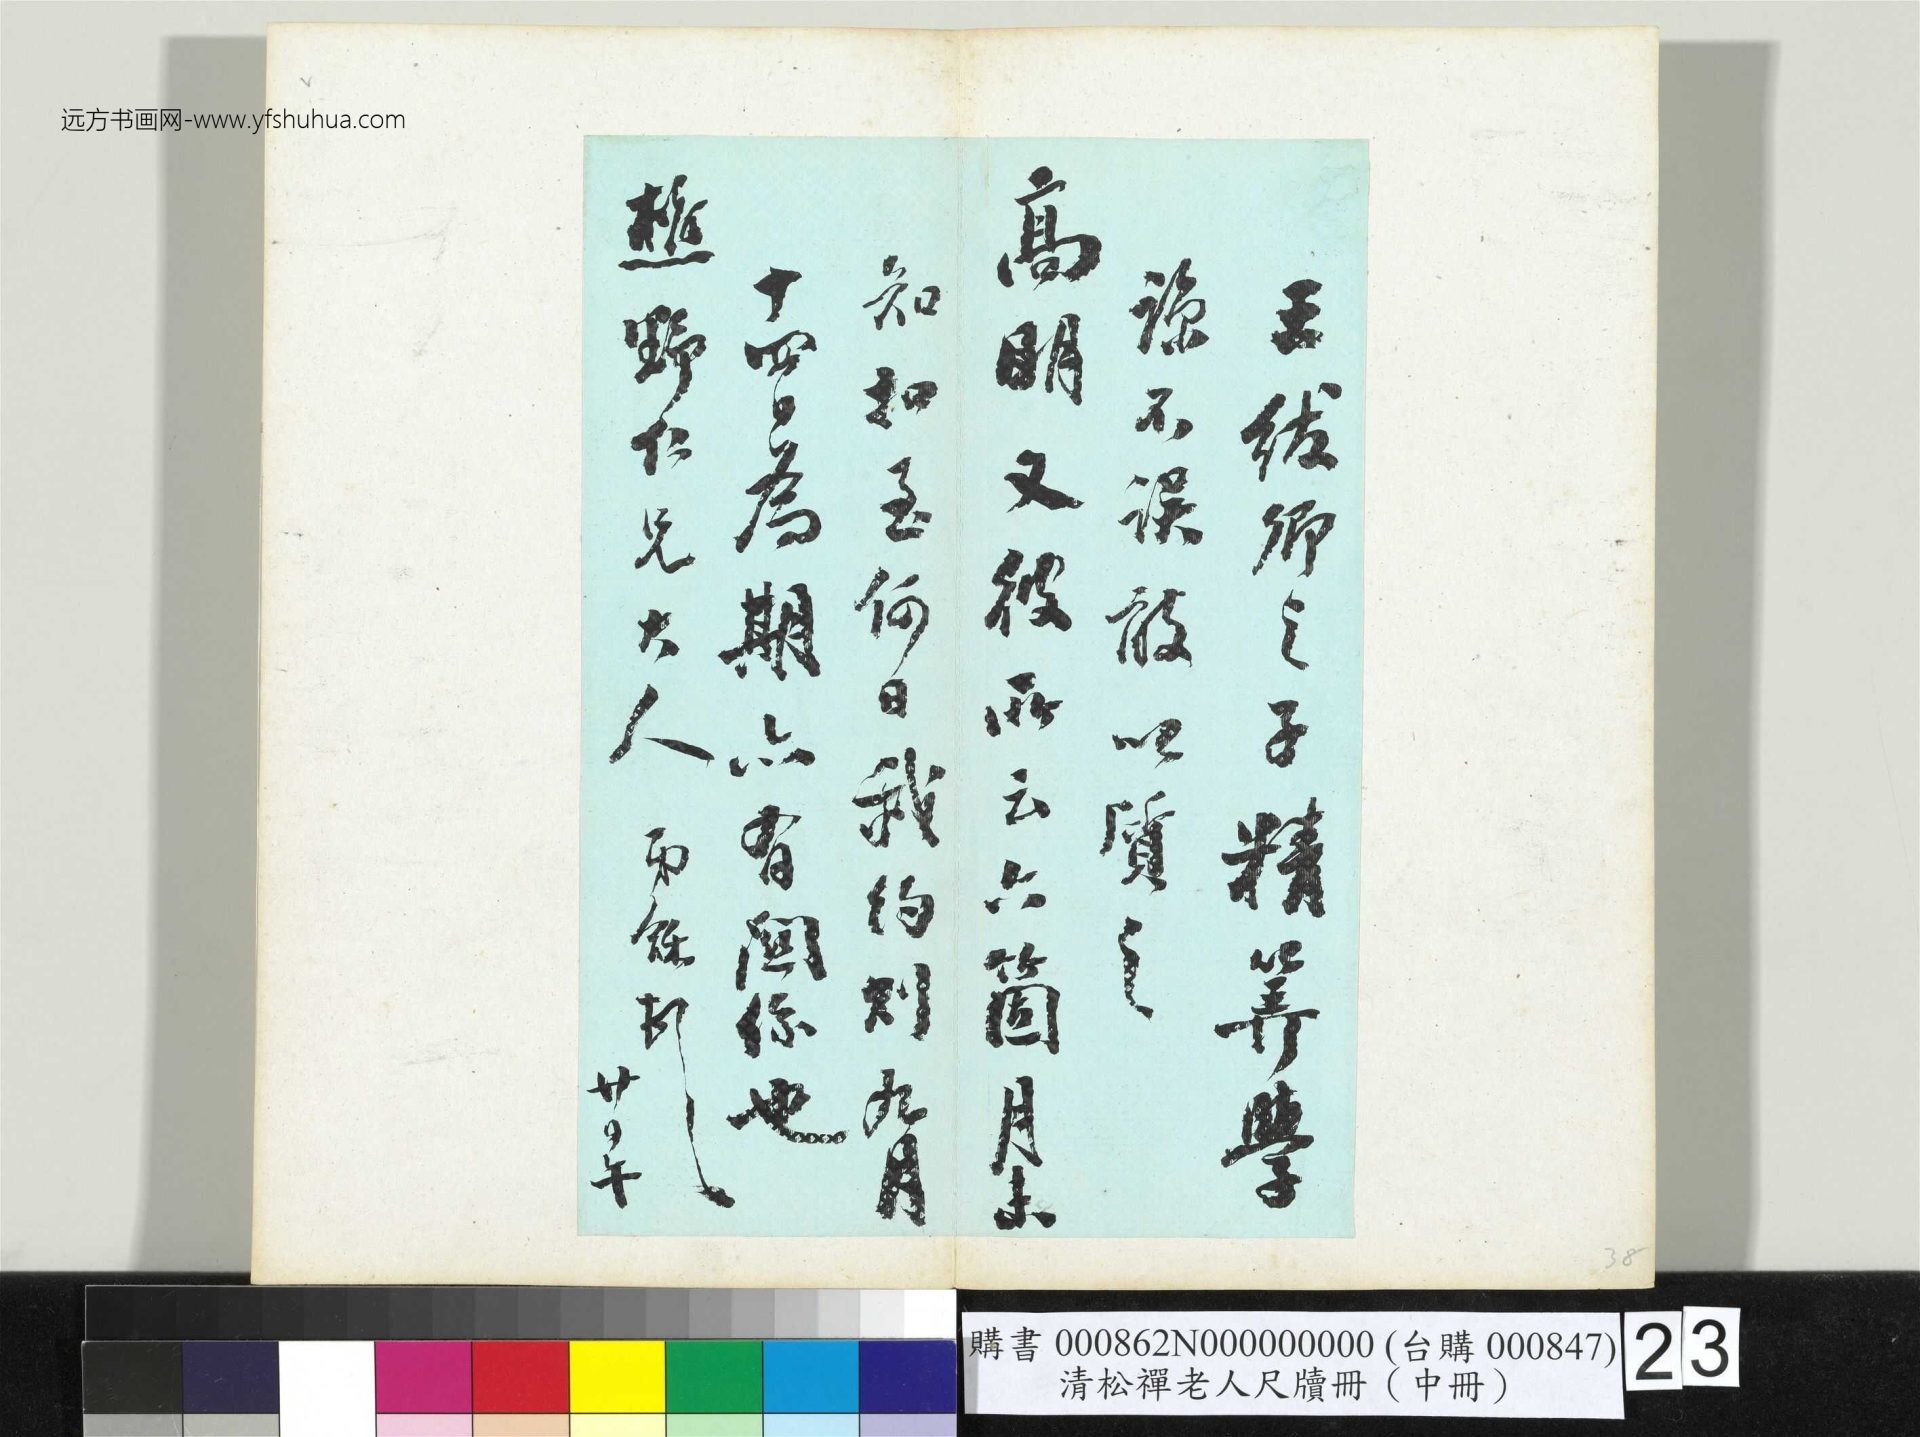 远方书画网-www.yfshuhua.com
王紱卿之子精算學
諒不误敢以質之
高明又彼所云六箇月未
知扣至何日我約則九月
十四日為期亦有關係也
樵野仁兄大人 弟龢頓 廿日午
38
購書 000862N000000000 (台購 000847)
清松禪老人尺牘冊（中冊）
23